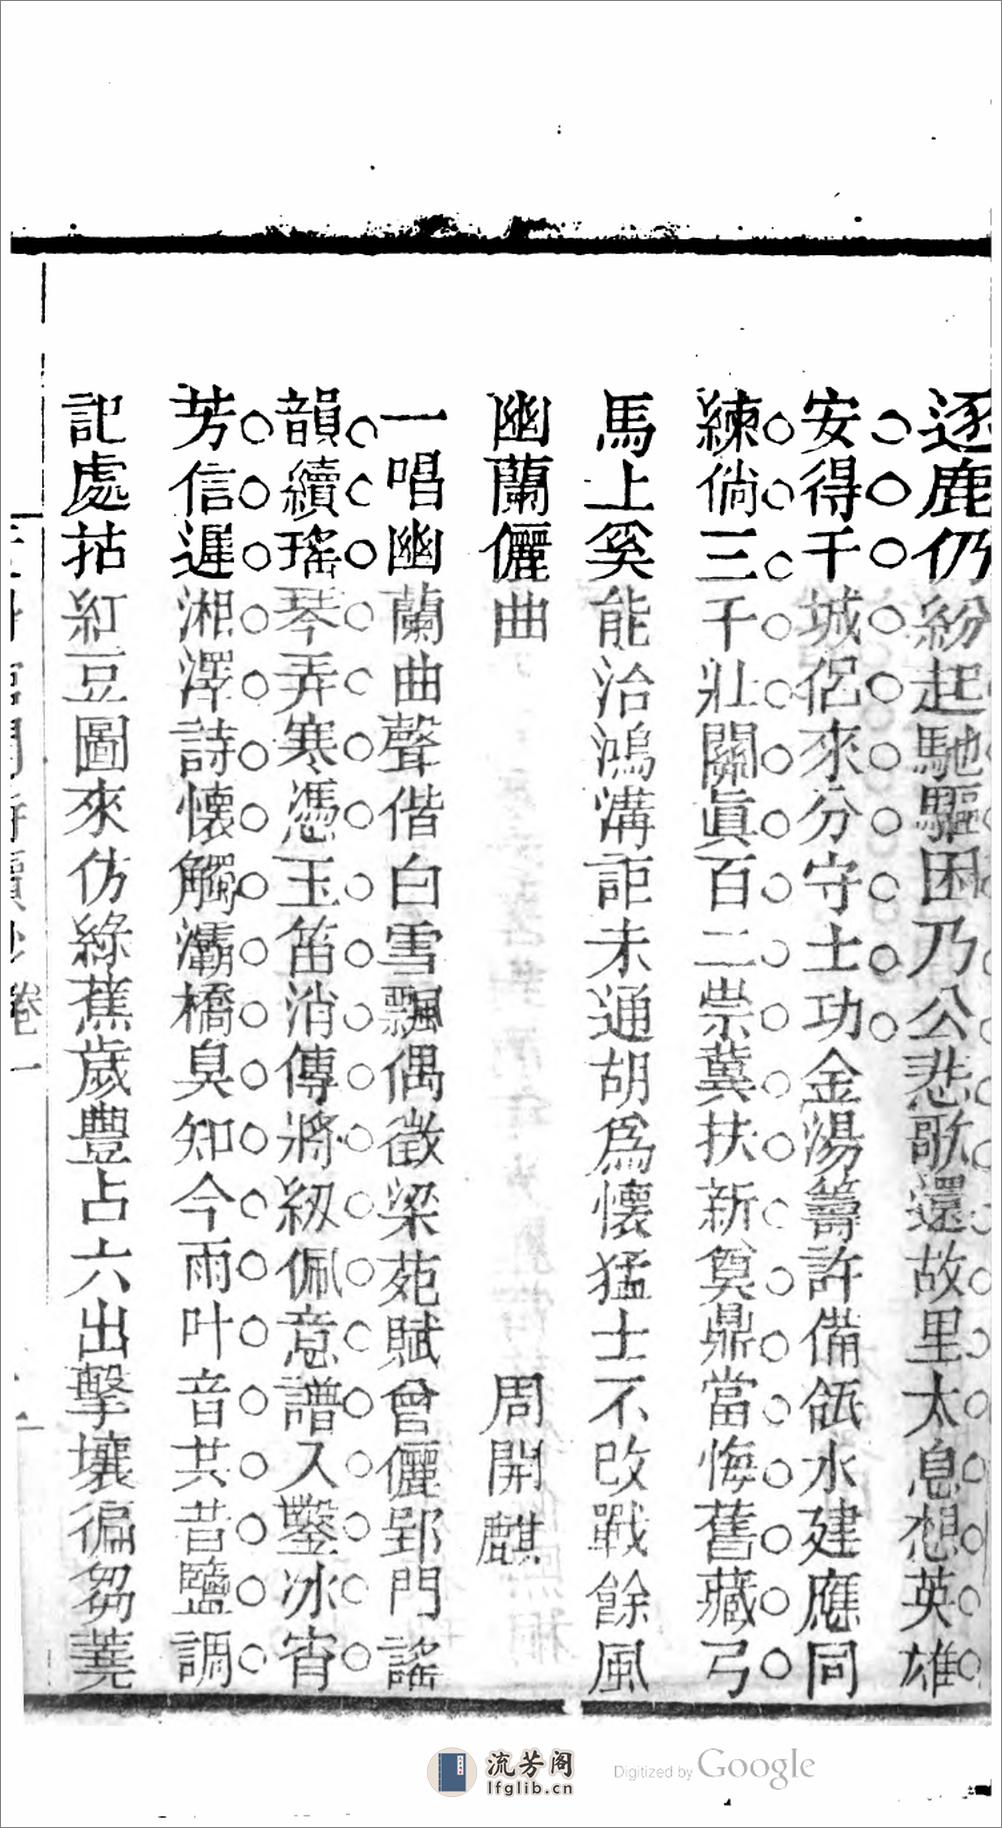 逐鹿仍紛起馳驅困乃公悲歌還故里太息想英雄
安得千城侶來分守土功金湯籌許備瓴水建應同
練倘三千壯關眞百二崇冀扶新奠鼎當悔舊藏弓
馬上奚能治鴻溝詎未通胡爲懷猛士不改戰餘風
幽蘭儷曲 周開麒
一唱幽蘭曲聲偕白雪飄偶徵梁苑賦曾儷郢門謠
韻續瑤琴弄寒憑玉笛消傳將紉佩意譜入鑿冰宵
芳信遲湘澤詩懷觸灞橋臭知今雨叶音共昔鹽調
記處拈紅豆圖來仿綠蕉歲豐占六出擊壤徧芻蕘
卷一
流芳阁
lfglib.cn
Digitized by Google